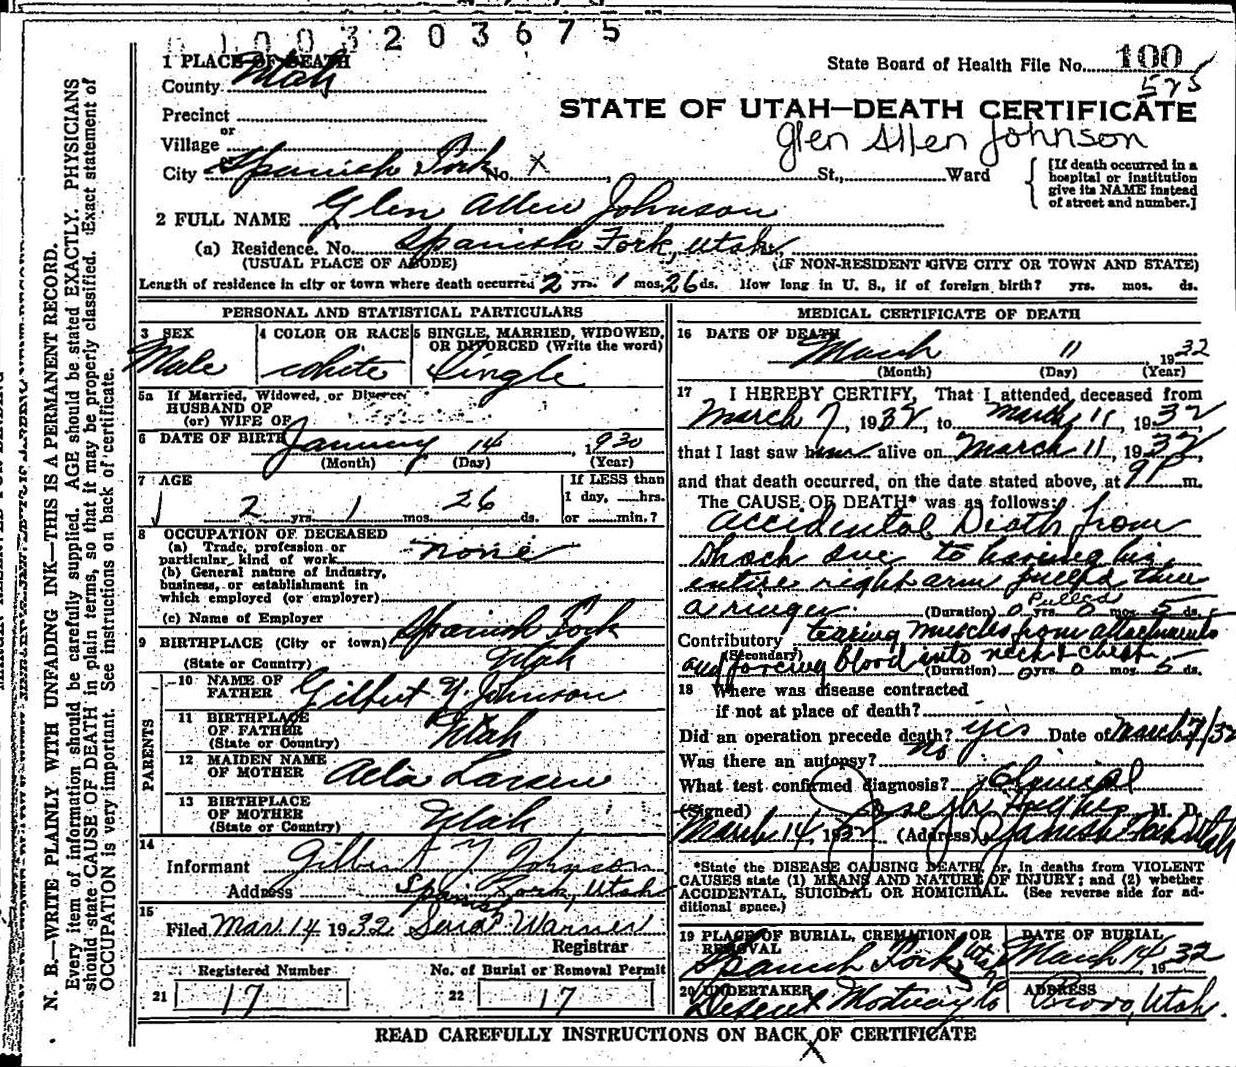 1003203675
1 PLACE OF DEATH
County Utah
State Board of Health File No. 100
575
Precinct
STATE OF UTAH—DEATH CERTIFICATE
or
Village
Glen Allen Johnson
City Spanish Fork No. X St., Ward
[If death occurred in a
hospital or institution
give its NAME instead
of street and number.]
2 FULL NAME Glen Allen Johnson
(a) Residence. No. Spanish Fork, Utah,
(USUAL PLACE OF ABODE) (IF NON-RESIDENT GIVE CITY OR TOWN AND STATE)
Length of residence in city or town where death occurred 2 yrs. 1 mos. 26 ds. How long in U. S., if of foreign birth? yrs. mos. ds.
PERSONAL AND STATISTICAL PARTICULARS
3 SEX
Male
4 COLOR OR RACE
white
5 SINGLE, MARRIED, WIDOWED,
OR DIVORCED (Write the word)
Single
5a If Married, Widowed, or Divorced
HUSBAND OF
(or) WIFE OF
6 DATE OF BIRTH January 14, 1930
(Month) (Day) (Year)
7 AGE
2 yrs. 1 mos. 26 ds.
If LESS than
1 day, hrs.
or min.?
8 OCCUPATION OF DECEASED
(a) Trade, profession or
particular kind of work none
(b) General nature of industry,
business, or establishment in
which employed (or employer)
(c) Name of Employer
9 BIRTHPLACE (City or town) Spanish Fork
(State or Country) Utah
PARENTS
10 NAME OF
FATHER Gilbert Y. Johnson
11 BIRTHPLACE
OF FATHER
(State or Country) Utah
12 MAIDEN NAME
OF MOTHER Larsen
13 BIRTHPLACE
OF MOTHER
(State or Country) Utah
14
Informant Gilbert Y Johnson
Address Spanish Fork, Utah
15
Filed Mar. 14 1932 Warner
Registrar
Registered Number
21 17
No. of Burial or Removal Permit
22 17
MEDICAL CERTIFICATE OF DEATH
16 DATE OF DEATH
March 11 1932
(Month) (Day) (Year)
17 I HEREBY CERTIFY, That I attended deceased from
March 7, 1932, to March 11, 1932
that I last saw him alive on March 11, 1932,
and that death occurred, on the date stated above, at 9 P m.
The CAUSE OF DEATH* was as follows:
Accidental Death from
shock due to having his
entire right arm pulled thru
a ringer. (Duration) 0 yrs. 0 mos. 5 ds.
Pulled
Contributory tearing muscles from attachments
(Secondary)
and forcing blood into neck & chest (Duration) 0 yrs. 0 mos. 5 ds.
18 Where was disease contracted
if not at place of death?
Did an operation precede death? yes Date of March 7/32
Was there an autopsy? No
What test confirmed diagnosis? Clinical
(Signed) Joseph Hughes M. D.
March 14, 1932 (Address) Spanish Fork Utah
*State the DISEASE CAUSING DEATH, or, in deaths from VIOLENT
CAUSES state (1) MEANS AND NATURE OF INJURY; and (2) whether
ACCIDENTAL, SUICIDAL OR HOMICIDAL. (See reverse side for ad-
ditional space.)
19 PLACE OF BURIAL, CREMATION, OR
REMOVAL
Spanish Fork, Utah
DATE OF BURIAL
March 14, 1932
20 UNDERTAKER
Deseret Mortuary Co
ADDRESS
Provo, Utah.
READ CAREFULLY INSTRUCTIONS ON BACK OF CERTIFICATE
X
N. B.—WRITE PLAINLY WITH UNFADING INK—THIS IS A PERMANENT RECORD.
Every item of information should be carefully supplied. AGE should be stated EXACTLY. PHYSICIANS
should state CAUSE OF DEATH in plain terms, so that it may be properly classified. Exact statement of
OCCUPATION is very important. See instructions on back of certificate.